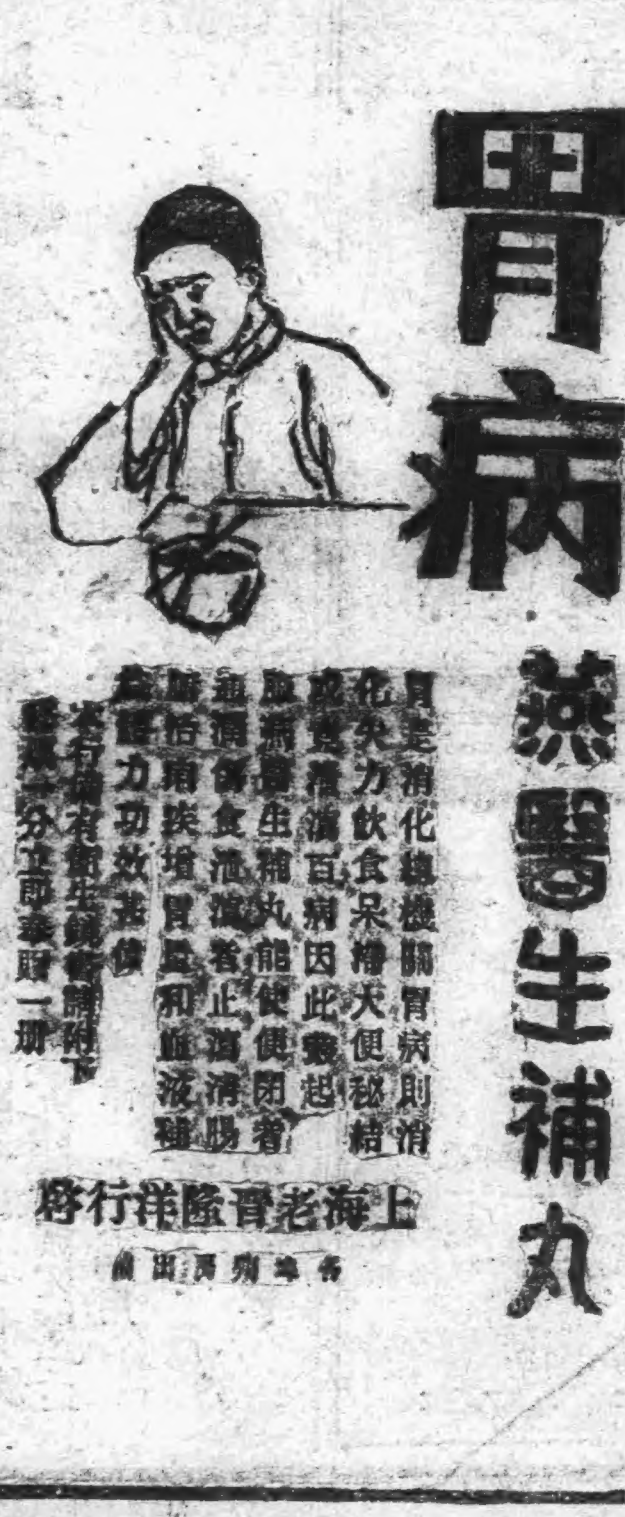 胃病
燕醫生補丸
胃是消化總機關胃病則消
化失力飲食呆滯大便秘結
或重滯瀉百病因此發起
服燕醫生補丸能使便閉者
通潤傷食泄瀉者止瀉清腸
治疾增胃氣和血液補
力功效甚偉
本行備有衛生請附下
郵票一分立即奉贈一册
上海老晋隆洋行啓
各埠藥房出